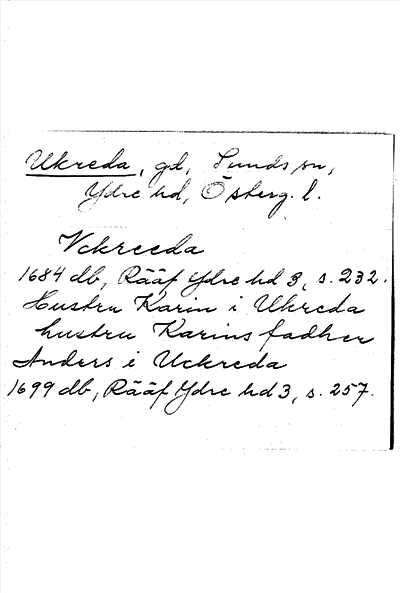 Ukreda, gd, Sunds sn,
Ydre hd, Österg. l.
Vckreeda
1684 db, Rääf Ydre hd 3, s. 232.
Hustru Karin i Ukreda
hustru Karins fadher
Anders i Uckreda
1699 db, Rääf Ydre hd 3, s. 257.